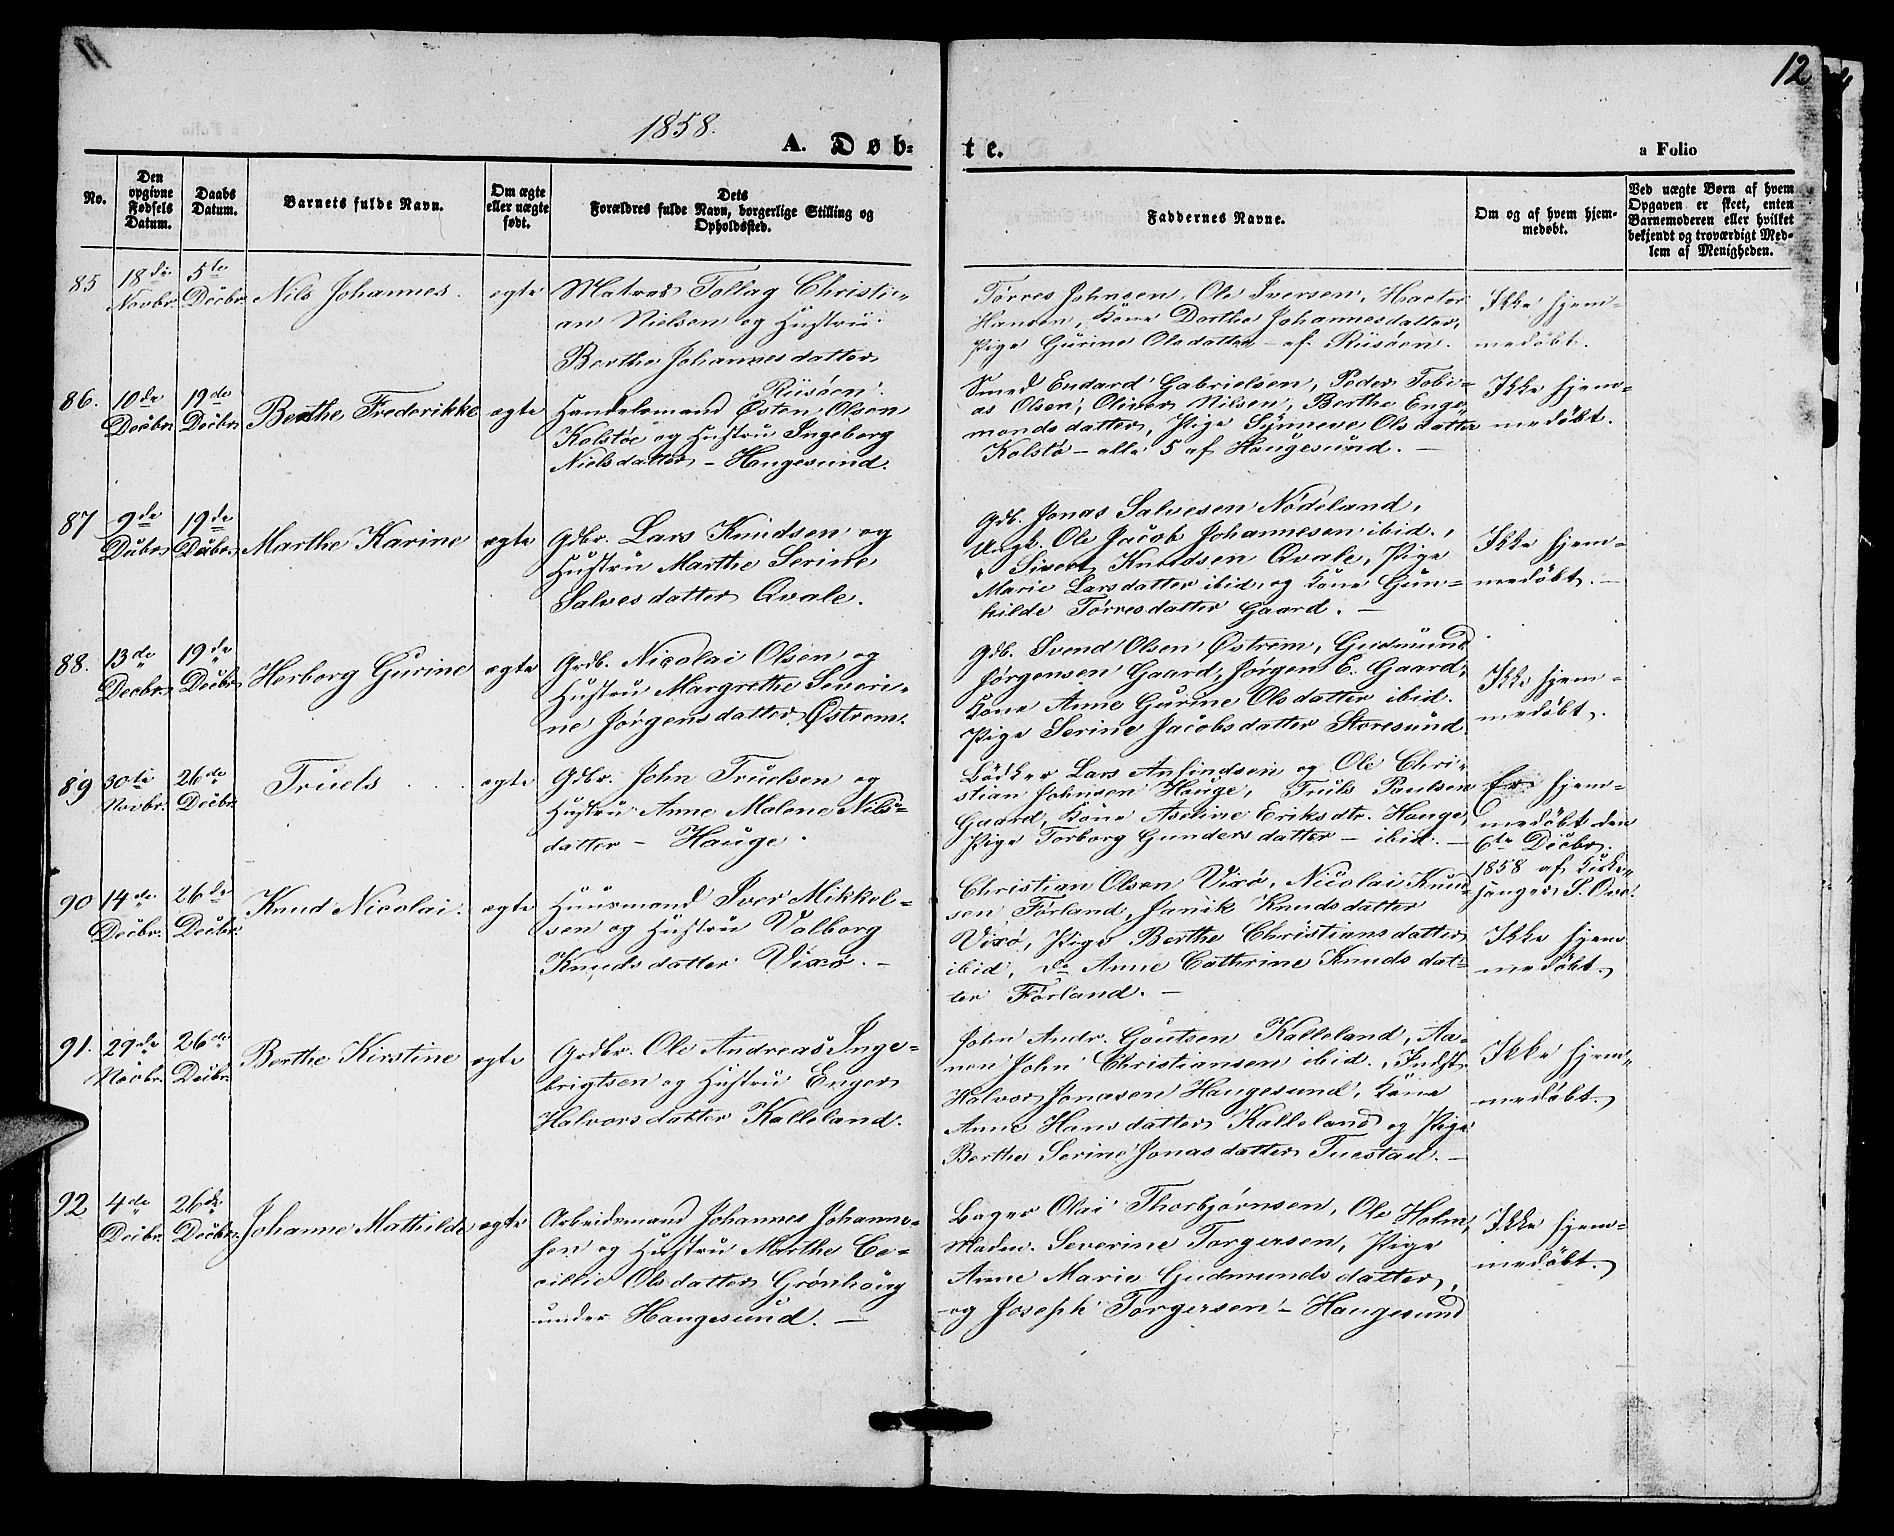 11
12
1858.
A. Døb-
te.
a Folio
No.
Den opgivne Fødsels Datum.
Daabs Datum.
Barnets fulde Navn.
Om ægte eller uægte født.
Dets Forældres fulde Navn, borgerlige Stilling og Opholdssted.
Faddernes Navne.
Om og af hvem hjem-
medøbt.
Ved uægte Børn af hvem
Opgaven er skeet, enten
Barnemoderen eller hvilket
bekjendt og troværdigt Med-
lem af Menigheden.
85
18de Novbr.
5te Decbr.
Nils Johannes.
ægte
Matros Tollag Christi-
an Nielsen og Hustru
Berthe Johannesdatter
Riisøen.
Torres Johnsen, Ole Iversen,
Hansen, Kone Dorthe Johannesdatter,
Pige Gurine Olsdatter - af Riisøen.
Ikke hjem-
medøbt.
86.
10de Decbr.
19de Decbr.
Berthe Frederikke
ægte
Handelsmand Østen Olsen
Kolstøe og Hustru Ingeborg
Nielsdatter - Haugesund.
Smed Endard Gabrielsen, Peder Tobi-
as Olsen, Oliver Nilsen, Berthe Enge-
mondsdatter, Pige Synneve Olsdatter
Kolstø - alle 5 af Haugesund. -
Ikke hjem-
medøbt.
87
9de Decbr.
19de Decbr.
Marthe Karine
ægte
Gdbr. Lars Knudsen og
Hustru Marthe Serine
Salvesdatter Qvale.
Gdb. Jonas Salvesen Nødeland,
Ungk. Ole Jacob Johannesen ibid.,
" Sivert Knudsen Qvale, Pige
Marie Larsdatter ibid, og Kone Gun-
hilde Torresdatter Gaard. -
Ikke hjem-
medøbt. -
88.
13de Decbr.
19de Decbr.
Herborg Gurine
ægte
Grdb. Nicolai Olsen og
Hustru Margrethe Severi-
ne Jørgensdatter Østrem.
Gdb. Svend Olsen Østrem, Gudmund
Jørgensen Gaard, Jørgen E. Gaard,
Kone Anne Gurine Olsdatter ibid.
Pige Serine Jacobsdatter Storesund.
Ikke hjem-
medøbt.
89
30te Novbr.
26de Decbr.
Truels
ægte
Gdbr. John Truelsen og
Hustru Anne Malene Nils-
datter - Hauge.
Bødker Lars Anfindsen og Ole Chri-
stian Johnsen Hauge, Truls Paulsen
Gaard, Kone Aseline Eriksdtr. Hauge,
Pige Torborg Gundersdatter - ibid. -
Er hjem-
medøbt den
6te Decbr.
1858 af Kirke-
sanger S.
90
14de Decbr.
26de Decbr.
Knud Nicolai.
ægte
Huusmand Iver Mikkel-
sen og Hustru Valborg
Knudsdatter Vixø. -
Christian Olsen Vixø, Nicolai Knud-
sen Førland, Janik Knudsdatter
Vixø, Pige Berthe Christiansdatter
ibid, do Anne Cathrine Knudsdat-
ter Førland. -
Ikke hjem-
medøbt.
91.
29de Novbr.
26de Decbr.
Berthe Kirstine
ægte
Grdbr. Ole Andreas Inge-
brigtsen og Hustru Enger
Halvorsdatter Kalleland.
John Andr. Goutsen Kalleland, Aa-
nen John Christiansen ibid., Indst.
Halvor Jonasen Haugesund, Kone
Anne Hansdatter Kalleland og Pige
Berthe Serine Jonasdatter Tuestad. -
Ikke hjem-
medøbt.
92
4de Decbr.
26de Decbr.
Johanne Mathilde
ægte
Arbeidsmand Johannes Johanne-
sen og Hustru Marthe Ce-
cillie Olsdatter Grønhaug
under Haugesund. -
Bager Olai Thorbjørnsen, Ole Holm,
Madm. Severine Torgersen, Pige
Anne Marie Gudmundsdatter,
og Joseph Torgersen - Haugesund
Ikke hjem-
medøbt.